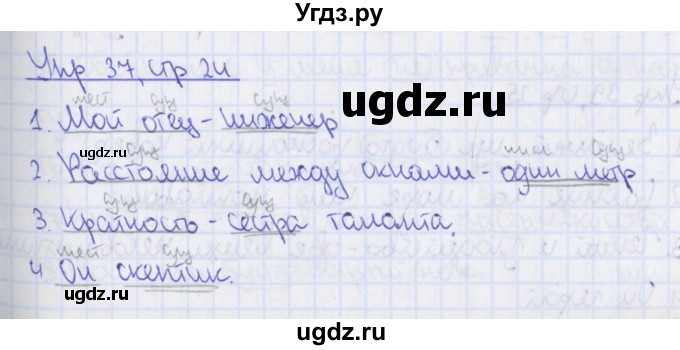 Угдз.ру
Упр 37, стр 24
мест сущ сущ
1. Мой отец - инженер
ugdz.ru ugdz.ru
сущ числ сущ
2. Расстояние между окнами - один метр.
сущ сущ
3. Краткость - сестра таланта.
мест сущ
4. Он скептик.
ugdz.ru ugdz.ru
ugdz.ru